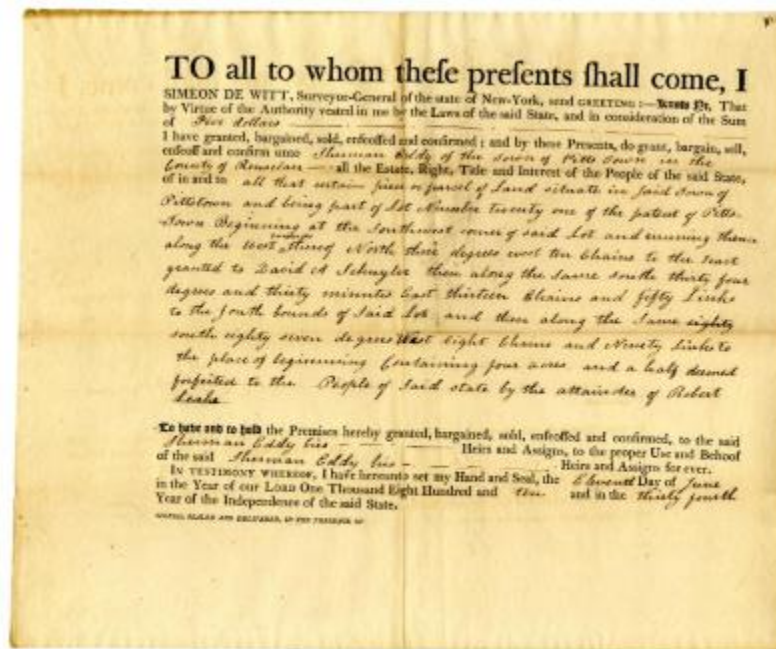 TO all to whom theſe preſents ſhall come, I
SIMEON DE WITT, Surveyor-General of the state of New-York, send GREETING:—Know Ye, That
by Virtue of the Authority vested in me by the Laws of the said State, and in consideration of the Sum
of Five dollars
I have granted, bargained, sold, enfeoffed and confirmed; and by these Presents, do grant, bargain, sell,
enfeoff and confirm unto Sherman Eddy of the Town of Pitts Town in the
County of Rensselaer — all the Estate, Right, Title and Interest of the People of the said State,
of in and to all that certain piece or parcel of Land situate in said Town of
Pittstown and being part of Lot Number twenty one of the patent of Pitts
Town Beginning at the Southwest corner of said Lot and running thence
along the West thereof North three degrees west ten Chains to the
granted to David A Schuyler then along the same south thirty four
degrees and thirty minutes East thirteen Chains and fifty Links
to the south bounds of said Lot and then along the same eighty
south eighty seven degrees West Eight Chains and Ninety links to
the place of beginning Containing four acres and a half deemed
forfeited to the People of said state by the attainder of Robert
Leake
To have and to hold the Premises hereby granted, bargained, sold, enfeoffed and confirmed, to the said
Sherman Eddy his — Heirs and Assigns, to the proper Use and Behoof
of the said Sherman Eddy his — Heirs and Assigns for ever.
IN TESTIMONY WHEREOF, I have hereunto set my Hand and Seal, the Eleventh Day of June
in the Year of our LORD One Thousand Eight Hundred and ten and in the thirty fourth
Year of the Independence of the said State.
SIGNED, SEALED AND DELIVERED, IN THE PRESENCE OF